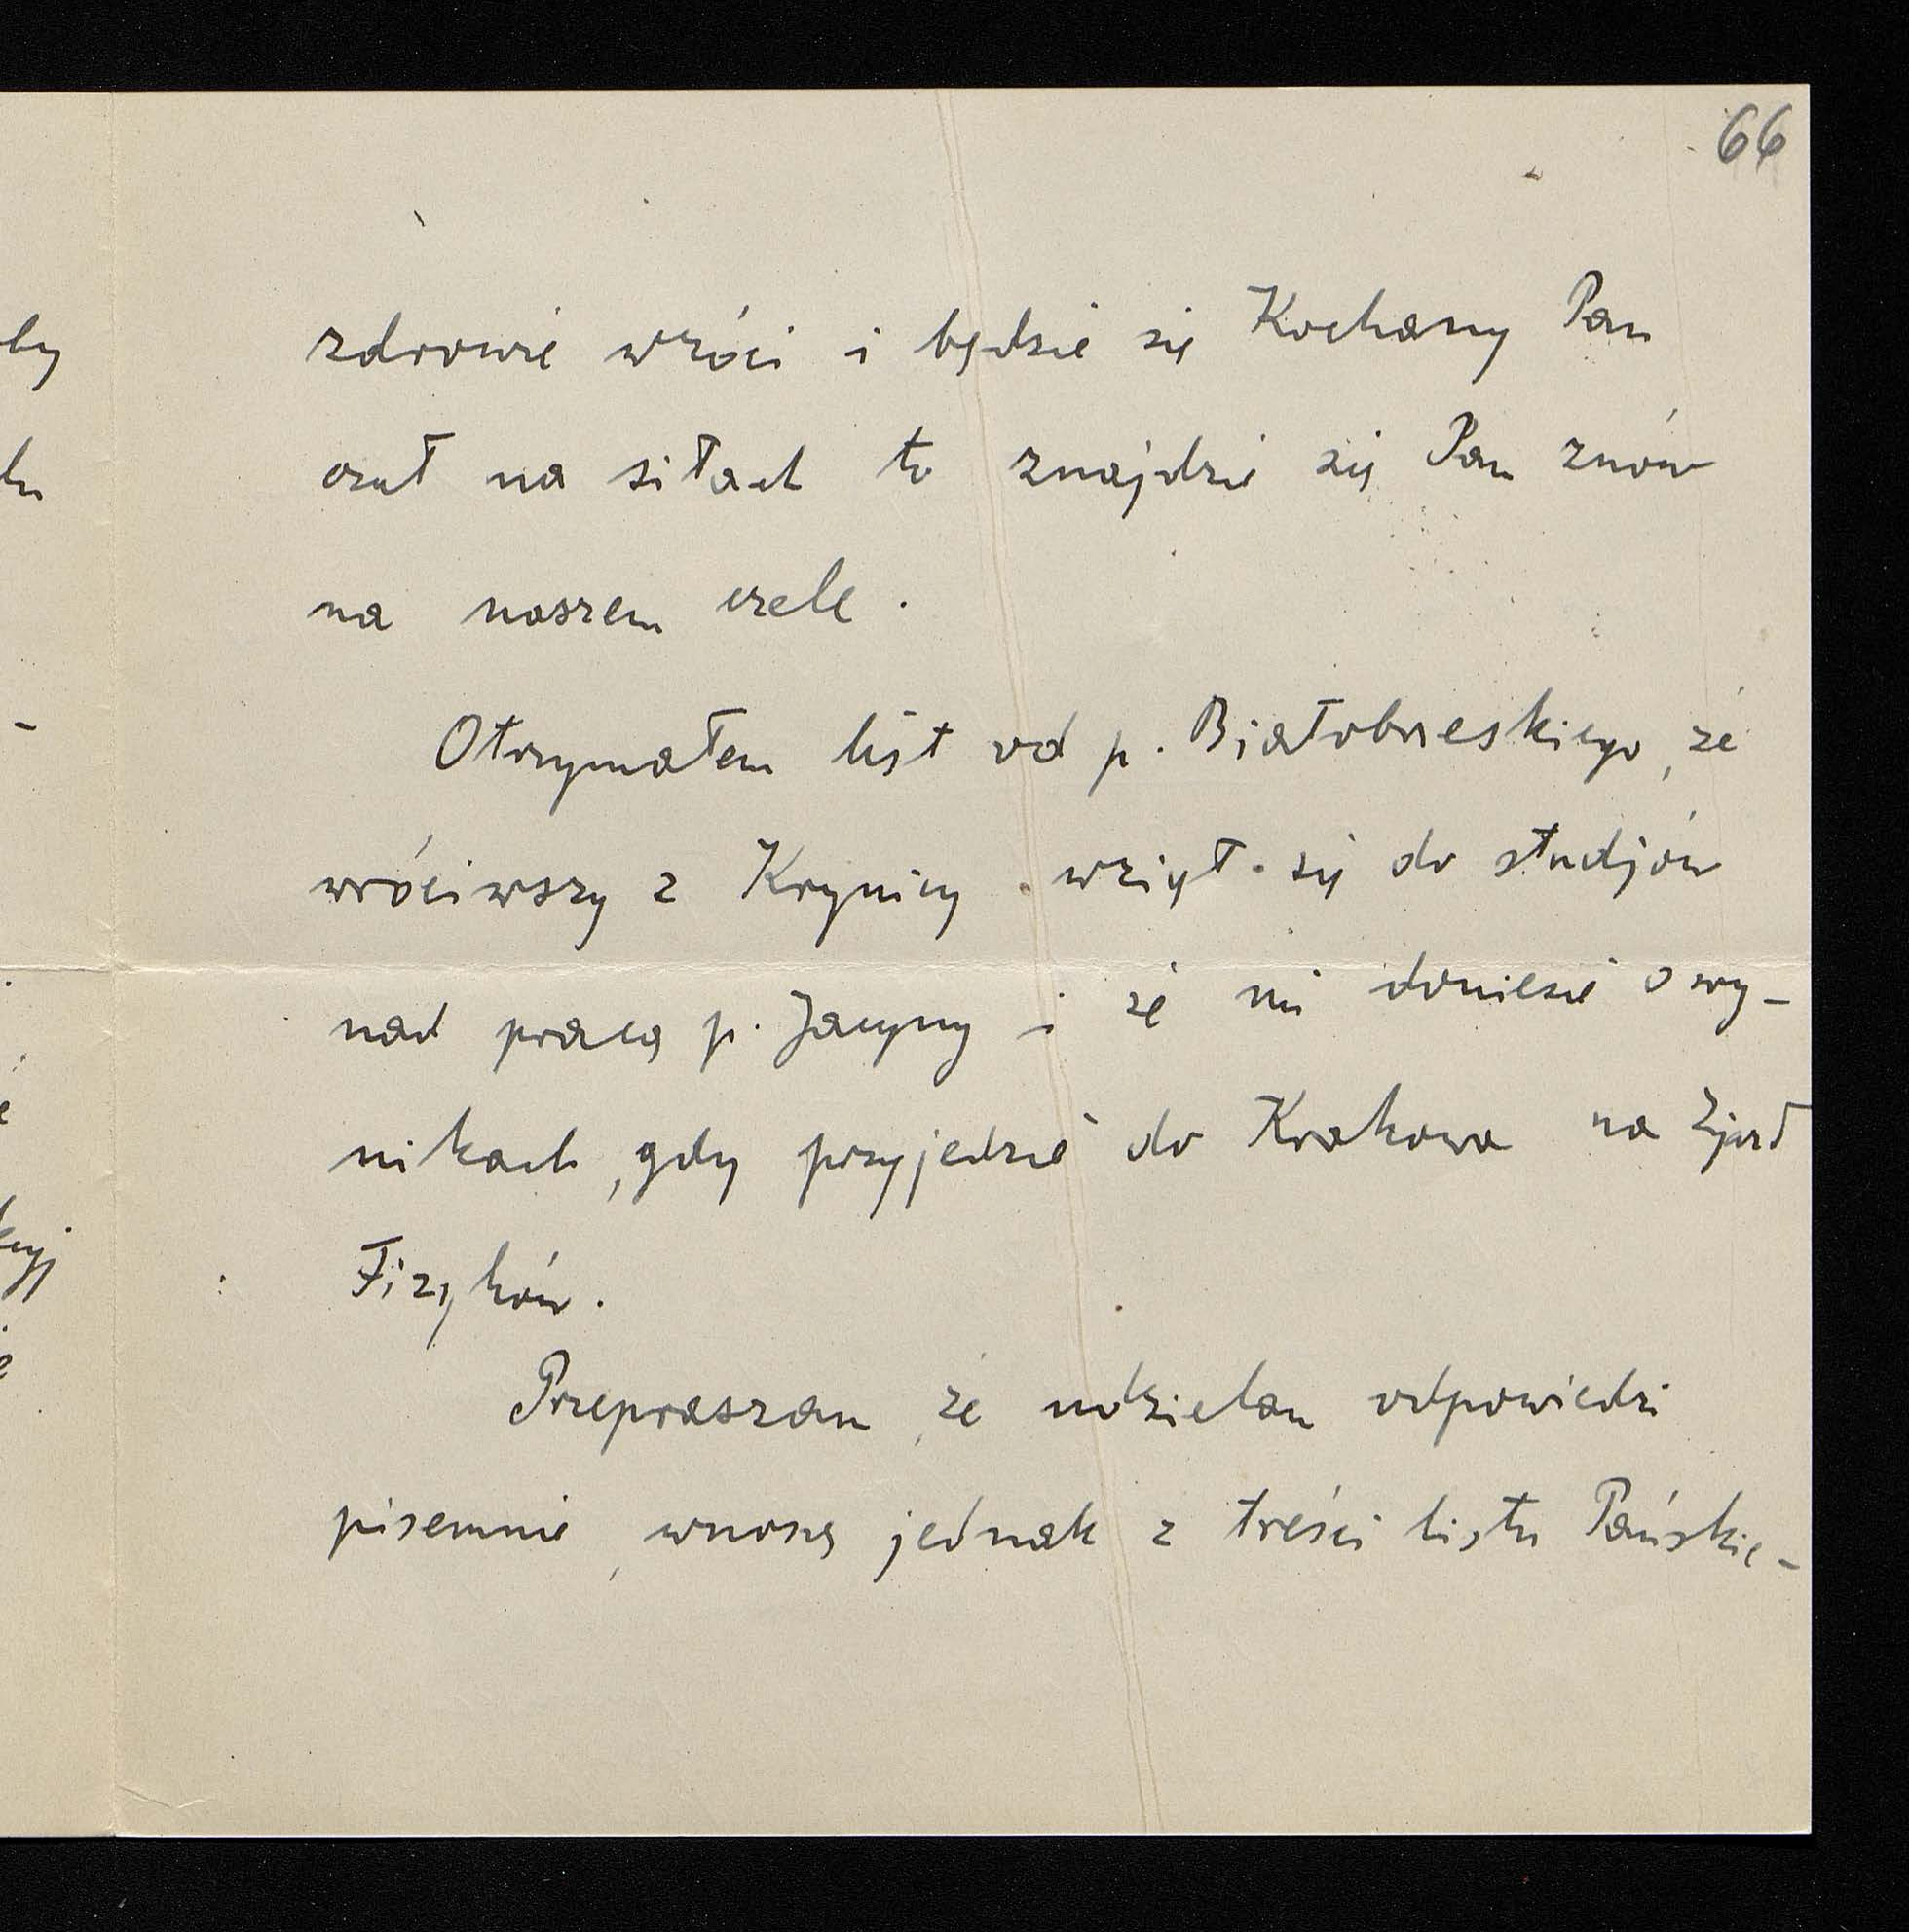 66
zdrowie wróci i będzie się Kochany Pan
czuł na siłach to znajdzie się Pan znów
na naszem czele.
Otrzymałem list od p. Białobrzeskiego, że
wróciwszy z Krynicy wziął się do studjów
nad pracą p. Jacyny i że mi doniesie o wy-
nikach, gdy przyjedzie do Krakowa na Zjazd
Fizyków.
Przepraszam, że udzielam odpowiedzi
pisemnie, wnoszę jednak z treści listu Pańskie-